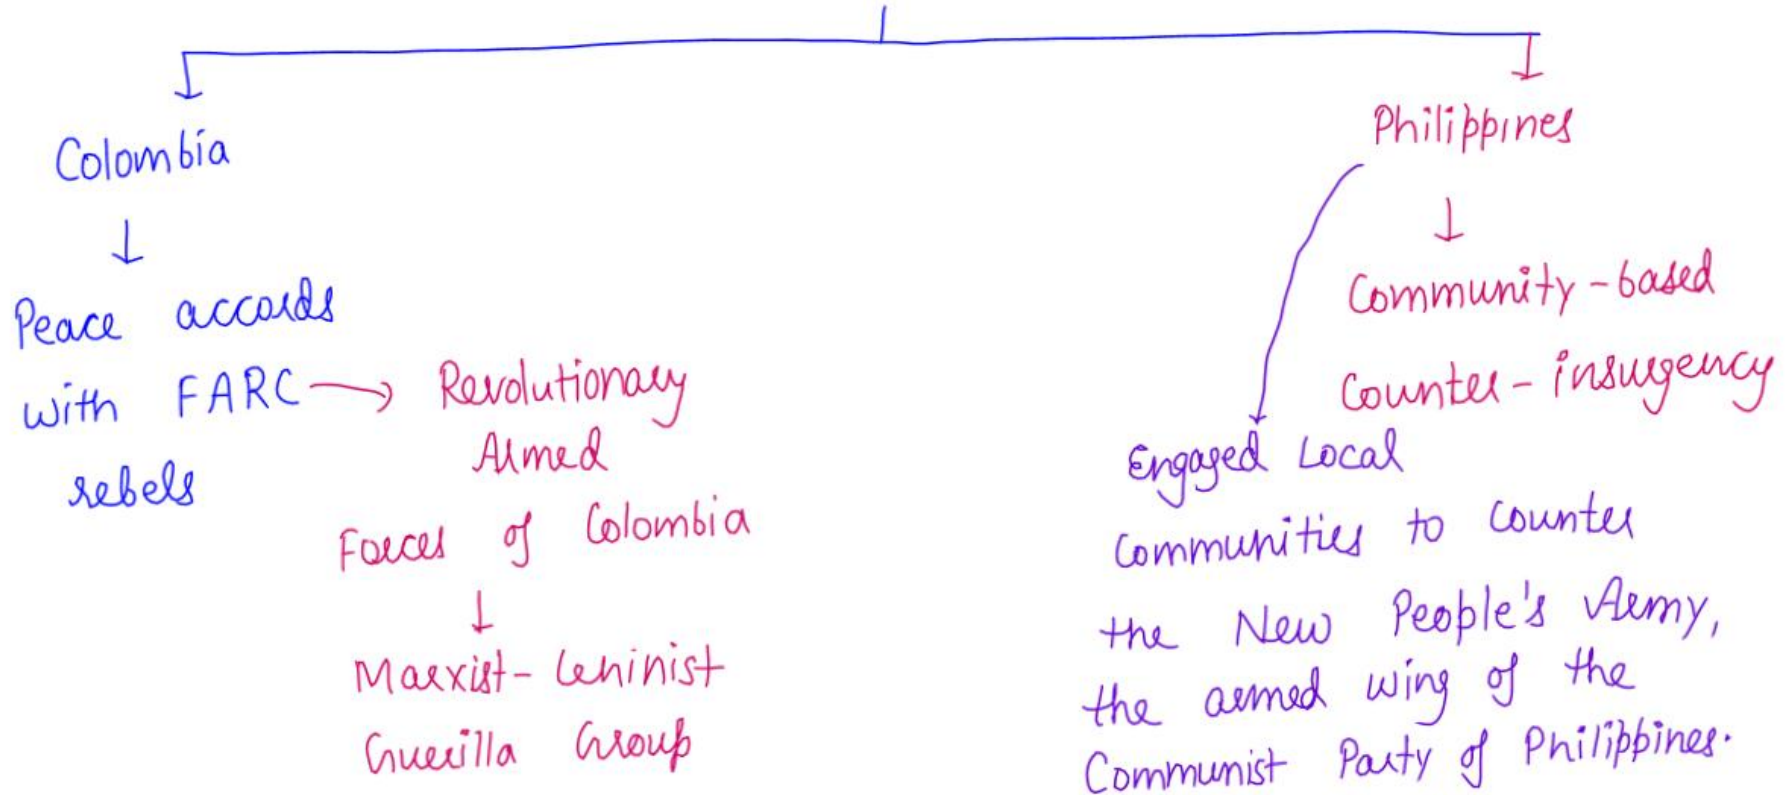 Colombia
Peace accords
with FARC
rebels
Revolutionary
Armed
Forces of Colombia
Marxist-Leninist
Guerilla Group
Philippines
Community-based
Counter-insurgency
Engaged Local
Communities to counter
the New People's Army,
the armed wing of the
Communist Party of Philippines.